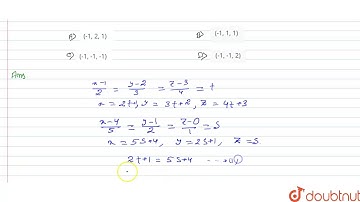 A) (-1, 2, 1) B) (-1, 1, 1)
C) (-1, -1, -1) D) (-1, -1, 2)
Ans
x-1/2 = y-2/3 = z-3/4 = t
x = 2t+1, y = 3t+2, z = 4t+3
x-4/5 = y-1/2 = z-0/1 = s
x = 5s+4, y = 2s+1, z = s
2t+1 = 5s+4
doubtnut